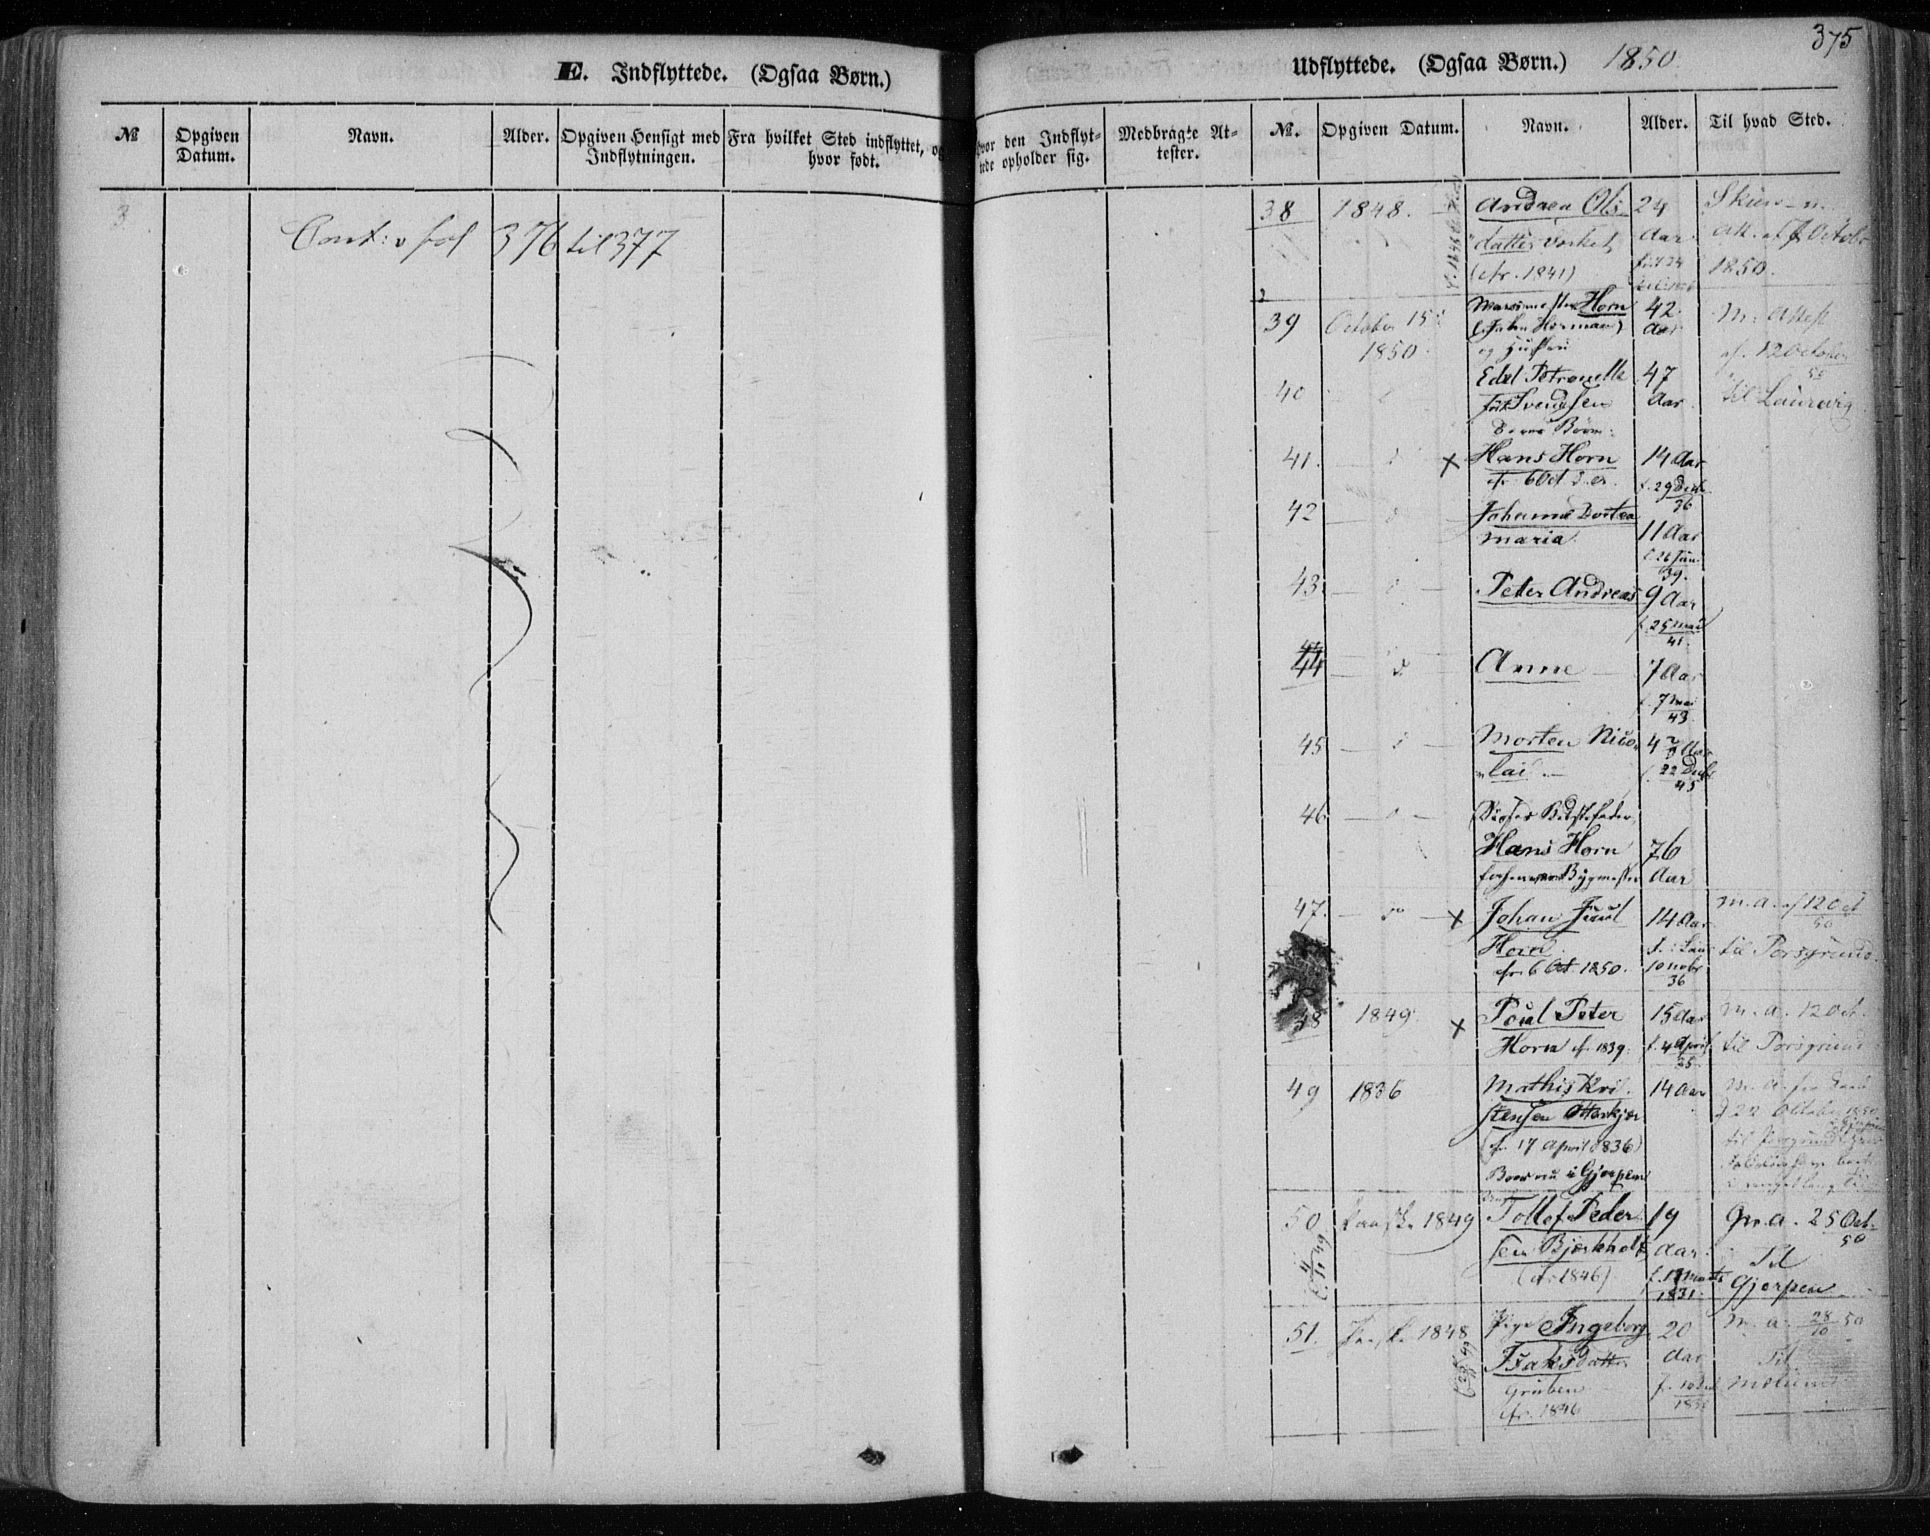 375
E. Indflyttede. (Ogsaa Børn.)
Udflyttede. (Ogsaa Børn.) 1850.
№ Opgiven Datum. Navn. Alder. Opgiven Hensigt med Indflytningen. Fra hvilket Sted indflyttet, og hvor født.
hvor den Indflyttede opholder sig. Medbragte Attester. №. Opgiven Datum. Navn. Alder. Til hvad Sted.
3
Cont: fol 376 til 377
38 1848. Andrea Ols 24 Skien
datter Aar Att. af October
(cfr. 1841) 1850.
39 October 15 Horn 42 m. Attest
1850 (John Herman) Aar af 12 October
og Hustru 50
40 Edel Petronelle 47 til Laurvig
Svendsen Aar
Børn:
41. × Hans Horn 14 Aar
cfr. 6 Oct d. a. f. 29 Decb
36
42 Johanne Dortea
Maria 11 Aar
f. 26 Juni
39.
43 Peter Andreas 9 Aar
f. 25 Mai
41.
44 Anne 7 Aar
f. 7 Mai
43.
45 Morten Nico 4 Aar
lai 22 Decb
45
46 Bedstefader,
Hans Horn 76
Bygmester Aar
47. × Johan Juul 14 Aar m. a. af 12 Oct
50
Horn til Porsgrund
cfr. 6 Oct 1850. 10 Novbr
36
48 1849 × Poul Peter 15 Aar m. a. 12 Oct.
Horn cfr. 1839. f. 4 April til Porsgrund
35
49 1836 Mathis Kri 14 Aar
stensen
22 October 1850
(cfr. 17 April 1836) til Porsgrund
i Gjerpen
50 1849 Tollef Peder 19 m. a. 25 Oct
50
sen Bjerkholt Aar Til
(cfr 1846) f. Marts Gjerpen
1831
51. 1848 Pige Ingeborg 20 m. a. 28/10 50
Isaksdatter Aar Til
Gruben
cfr. 1846